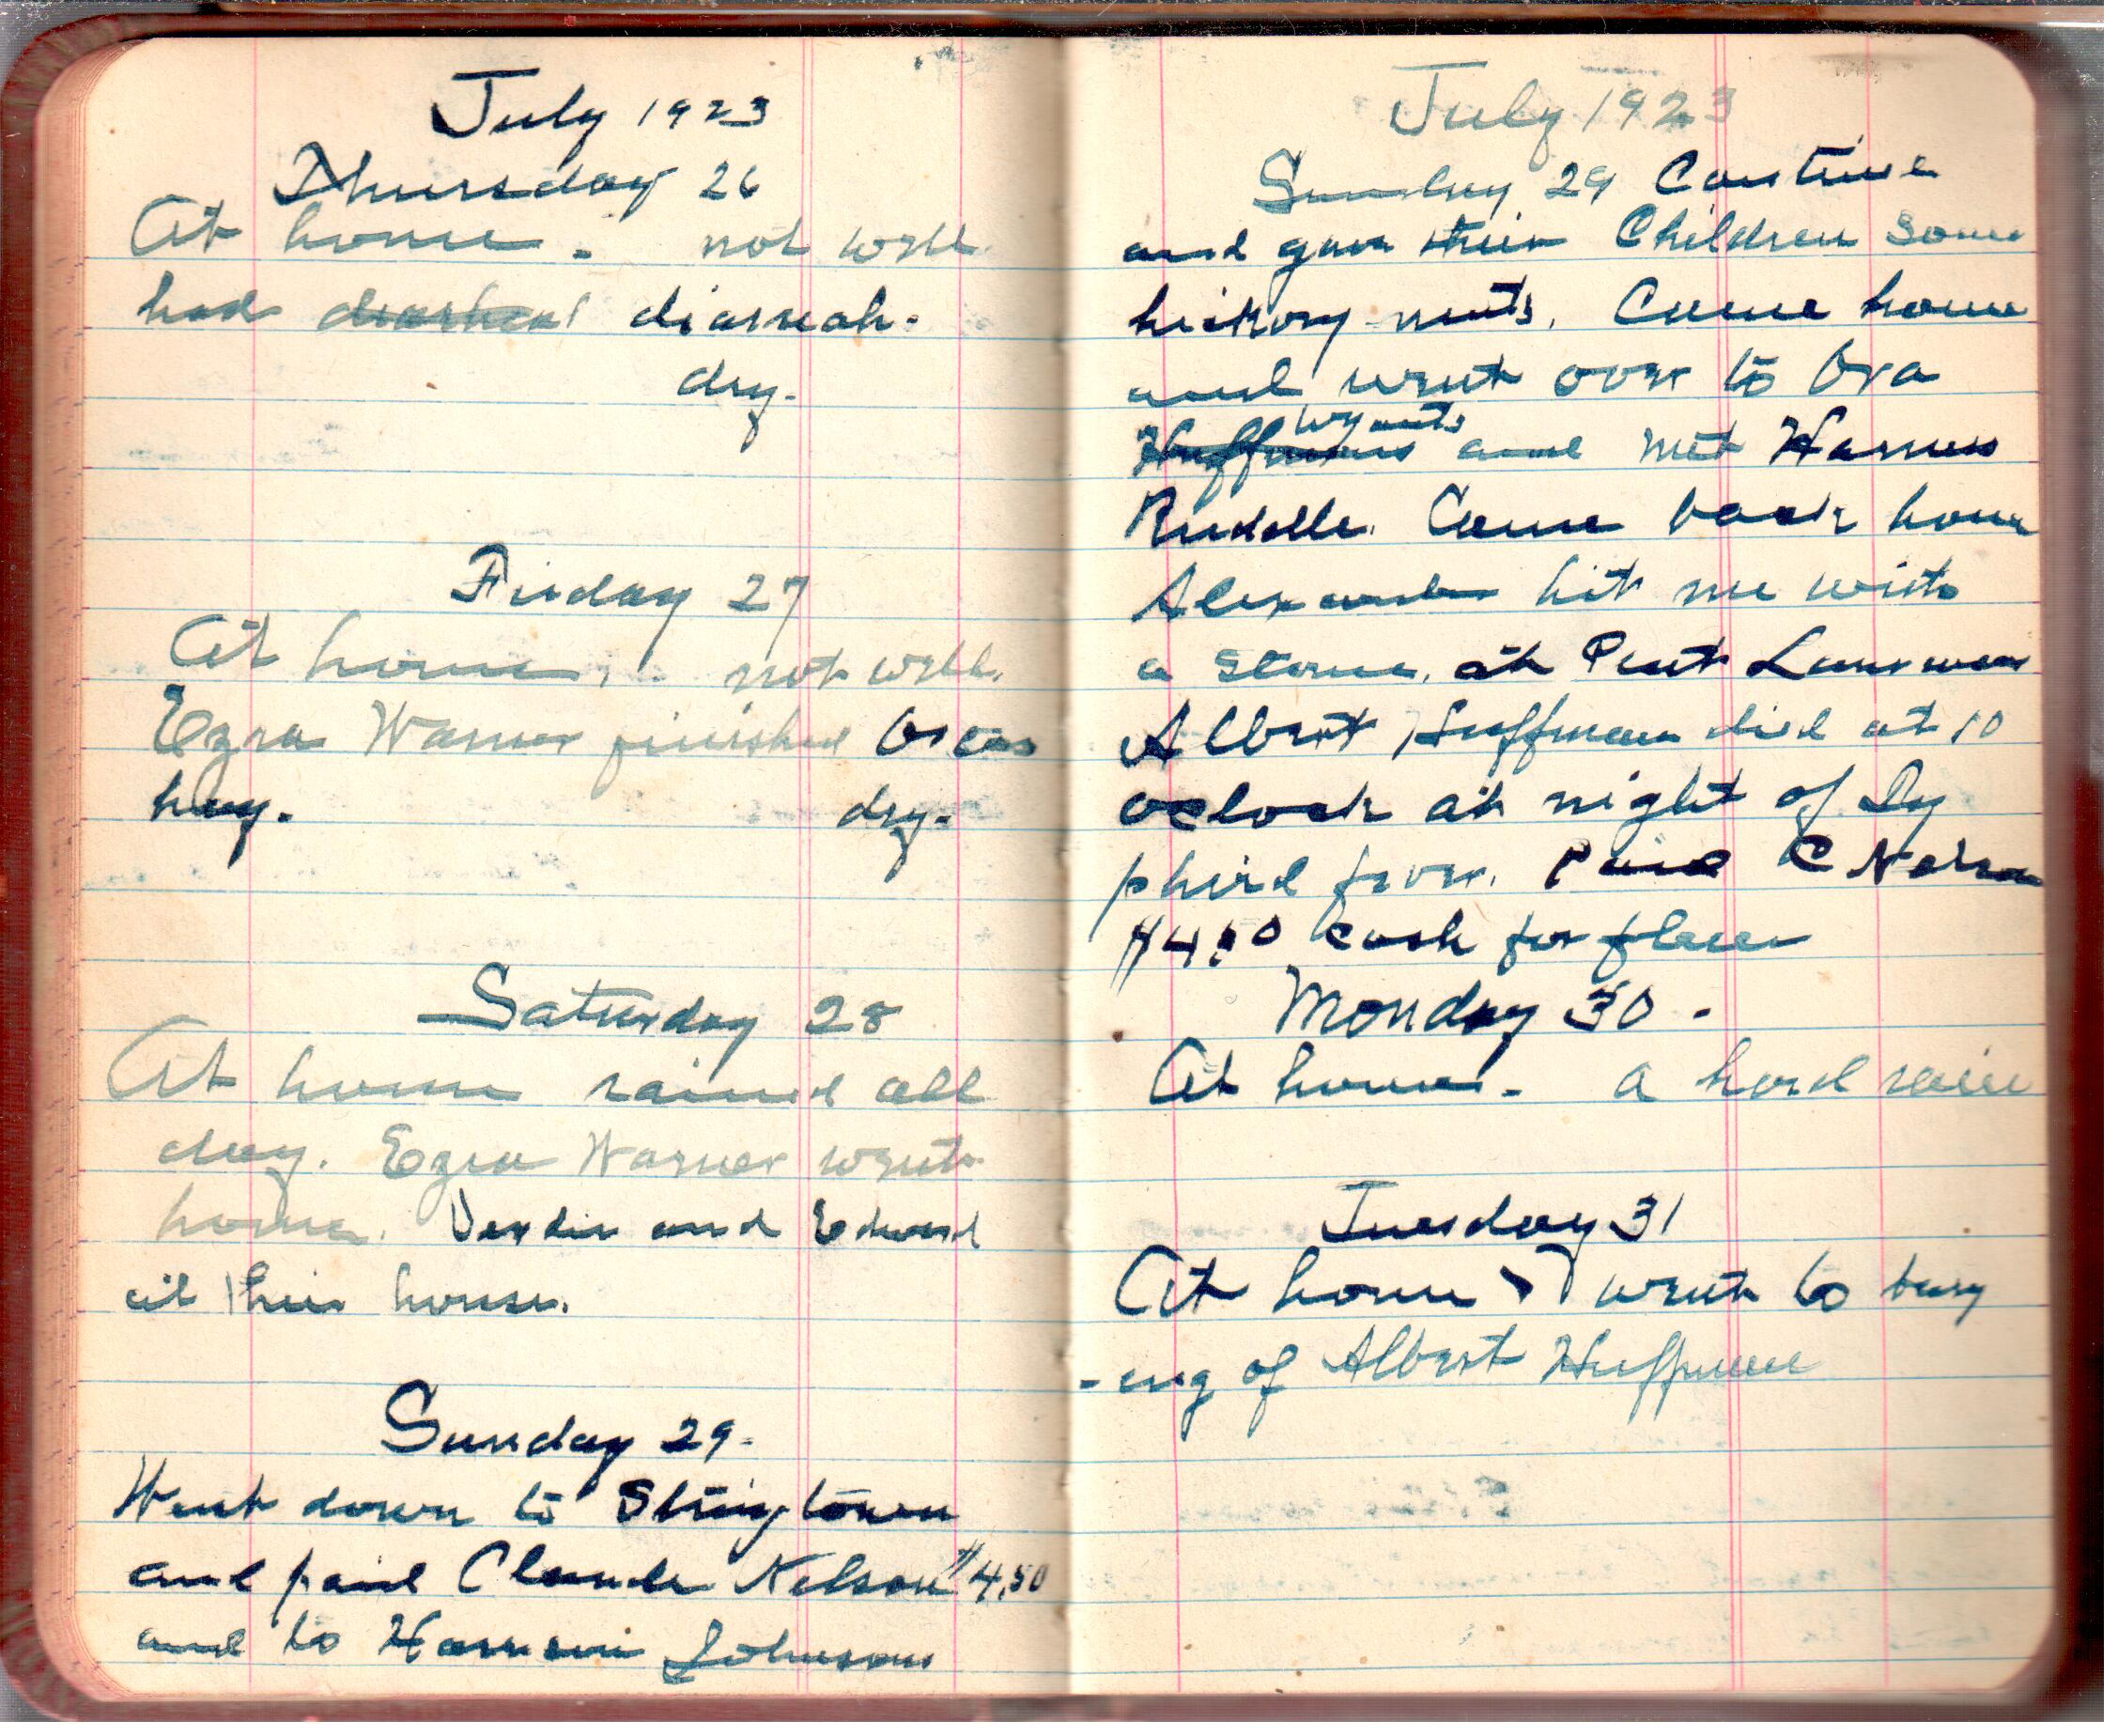 July 1923
Thursday 26
At home. not well
had diarreah.
dry.
Friday 27
At home, not well.
Ezra Warner finished
hay. dry.
Saturday 28
At home rained all
day. Ezra Warner went
home. and Edward
at their house.
Sunday 29.
Went down to Stringtown
and paid Claude Nelson $4.50
and to Johnsons
July 1923
Sunday 29 Continue
and gave their Children some
hickory nuts. Came home
and went over to Ora
Wyants
Huffmans and met
Came back home
Alexander hit me with
a stone. at
Albert Huffman died at 10
oclock at night of Dy
phird fever. Paid C Nelson
$4.50 cash for
Monday 30.
At home. a hard rain
Tuesday 31
At home I went to bury
-ing of Albert Huffman